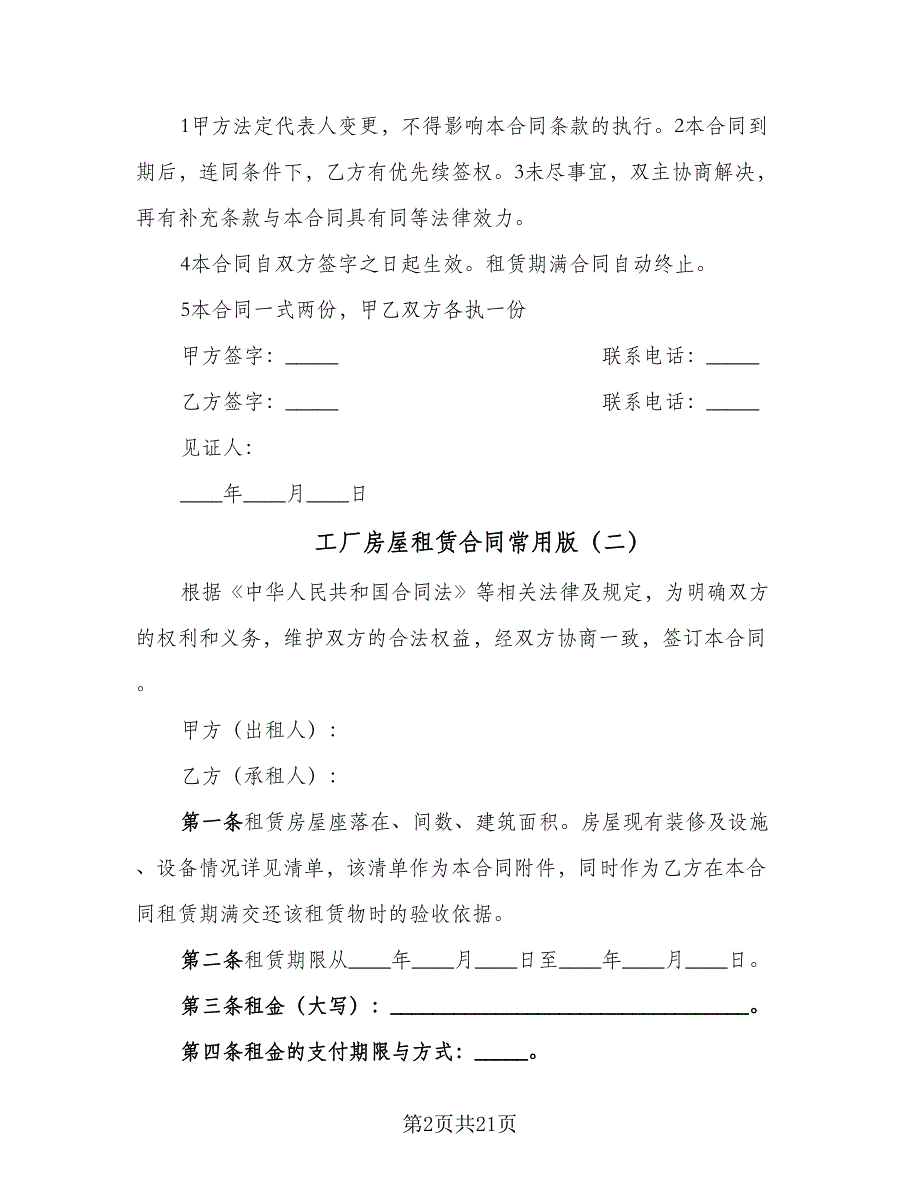 1甲方法定代表人变更，不得影响本合同条款的执行。2本合同到
期后，连同条件下，乙方有优先续签权。3未尽事宜，双主协商解决，
再有补充条款与本合同具有同等法律效力。
4本合同自双方签字之日起生效。租赁期满合同自动终止。
5本合同一式两份，甲乙双方各执一份
甲方签字：_____ 联系电话：_____
乙方签字：_____ 联系电话：_____
见证人：
____年____月____日
工厂房屋租赁合同常用版（二）
根据《中华人民共和国合同法》等相关法律及规定，为明确双方
的权利和义务，维护双方的合法权益，经双方协商一致，签订本合同
。
甲方（出租人）：
乙方（承租人）：
第一条租赁房屋座落在、间数、建筑面积。房屋现有装修及设施
、设备情况详见清单，该清单作为本合同附件，同时作为乙方在本合
同租赁期满交还该租赁物时的验收依据。
第二条租赁期限从____年____月____日至____年____月____日。
第三条租金（大写）：__________________________________。
第四条租金的支付期限与方式：_____。
第2页共21页